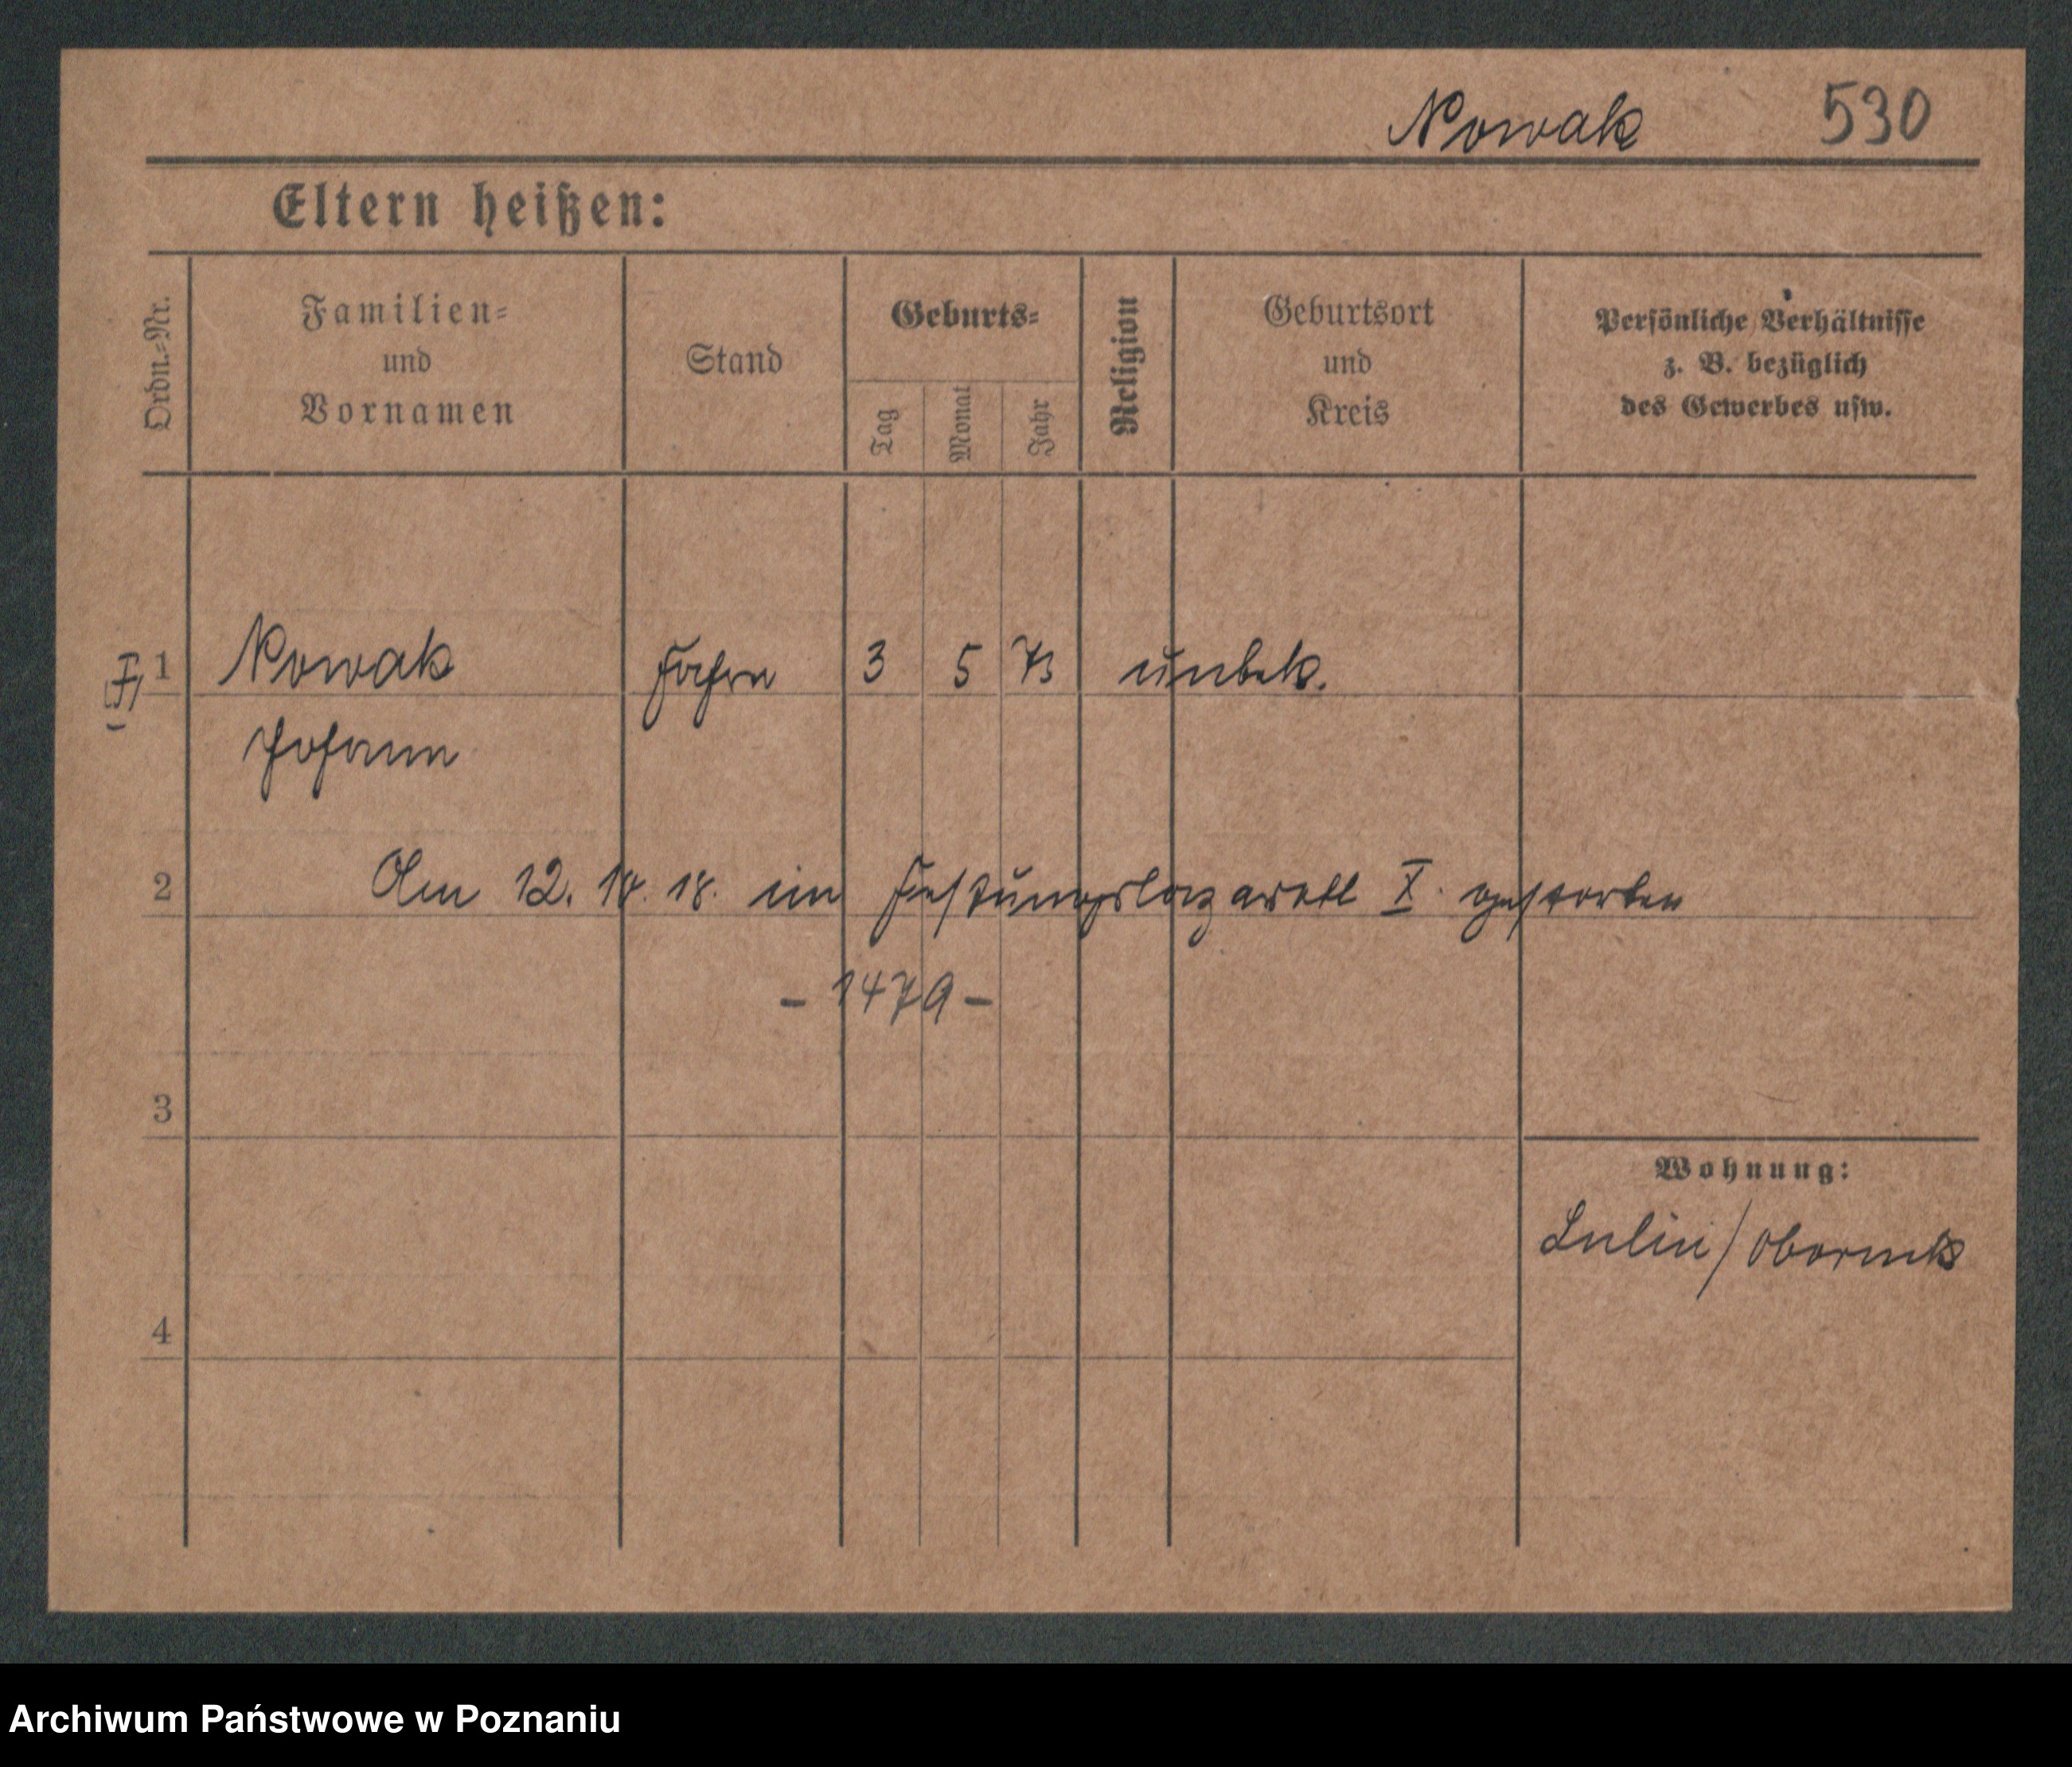 Nowak 530
Eltern heißen:
Ordn.-Nr.
Familien-
und
Vornamen
Stand
Geburts-
Tag
Monat
Jahr
Religion
Geburtsort
und
Kreis
Persönliche Verhältnisse
z. B. bezüglich
des Gewerbes usw.
1 Nowak 3 5 73 unbek.
Johann
2 Am 12. 10. 18. im Festungslazarett X. gestorben
- 1479 -
3
Wohnung:
Lulin / Obornik
4
Archiwum Państwowe w Poznaniu